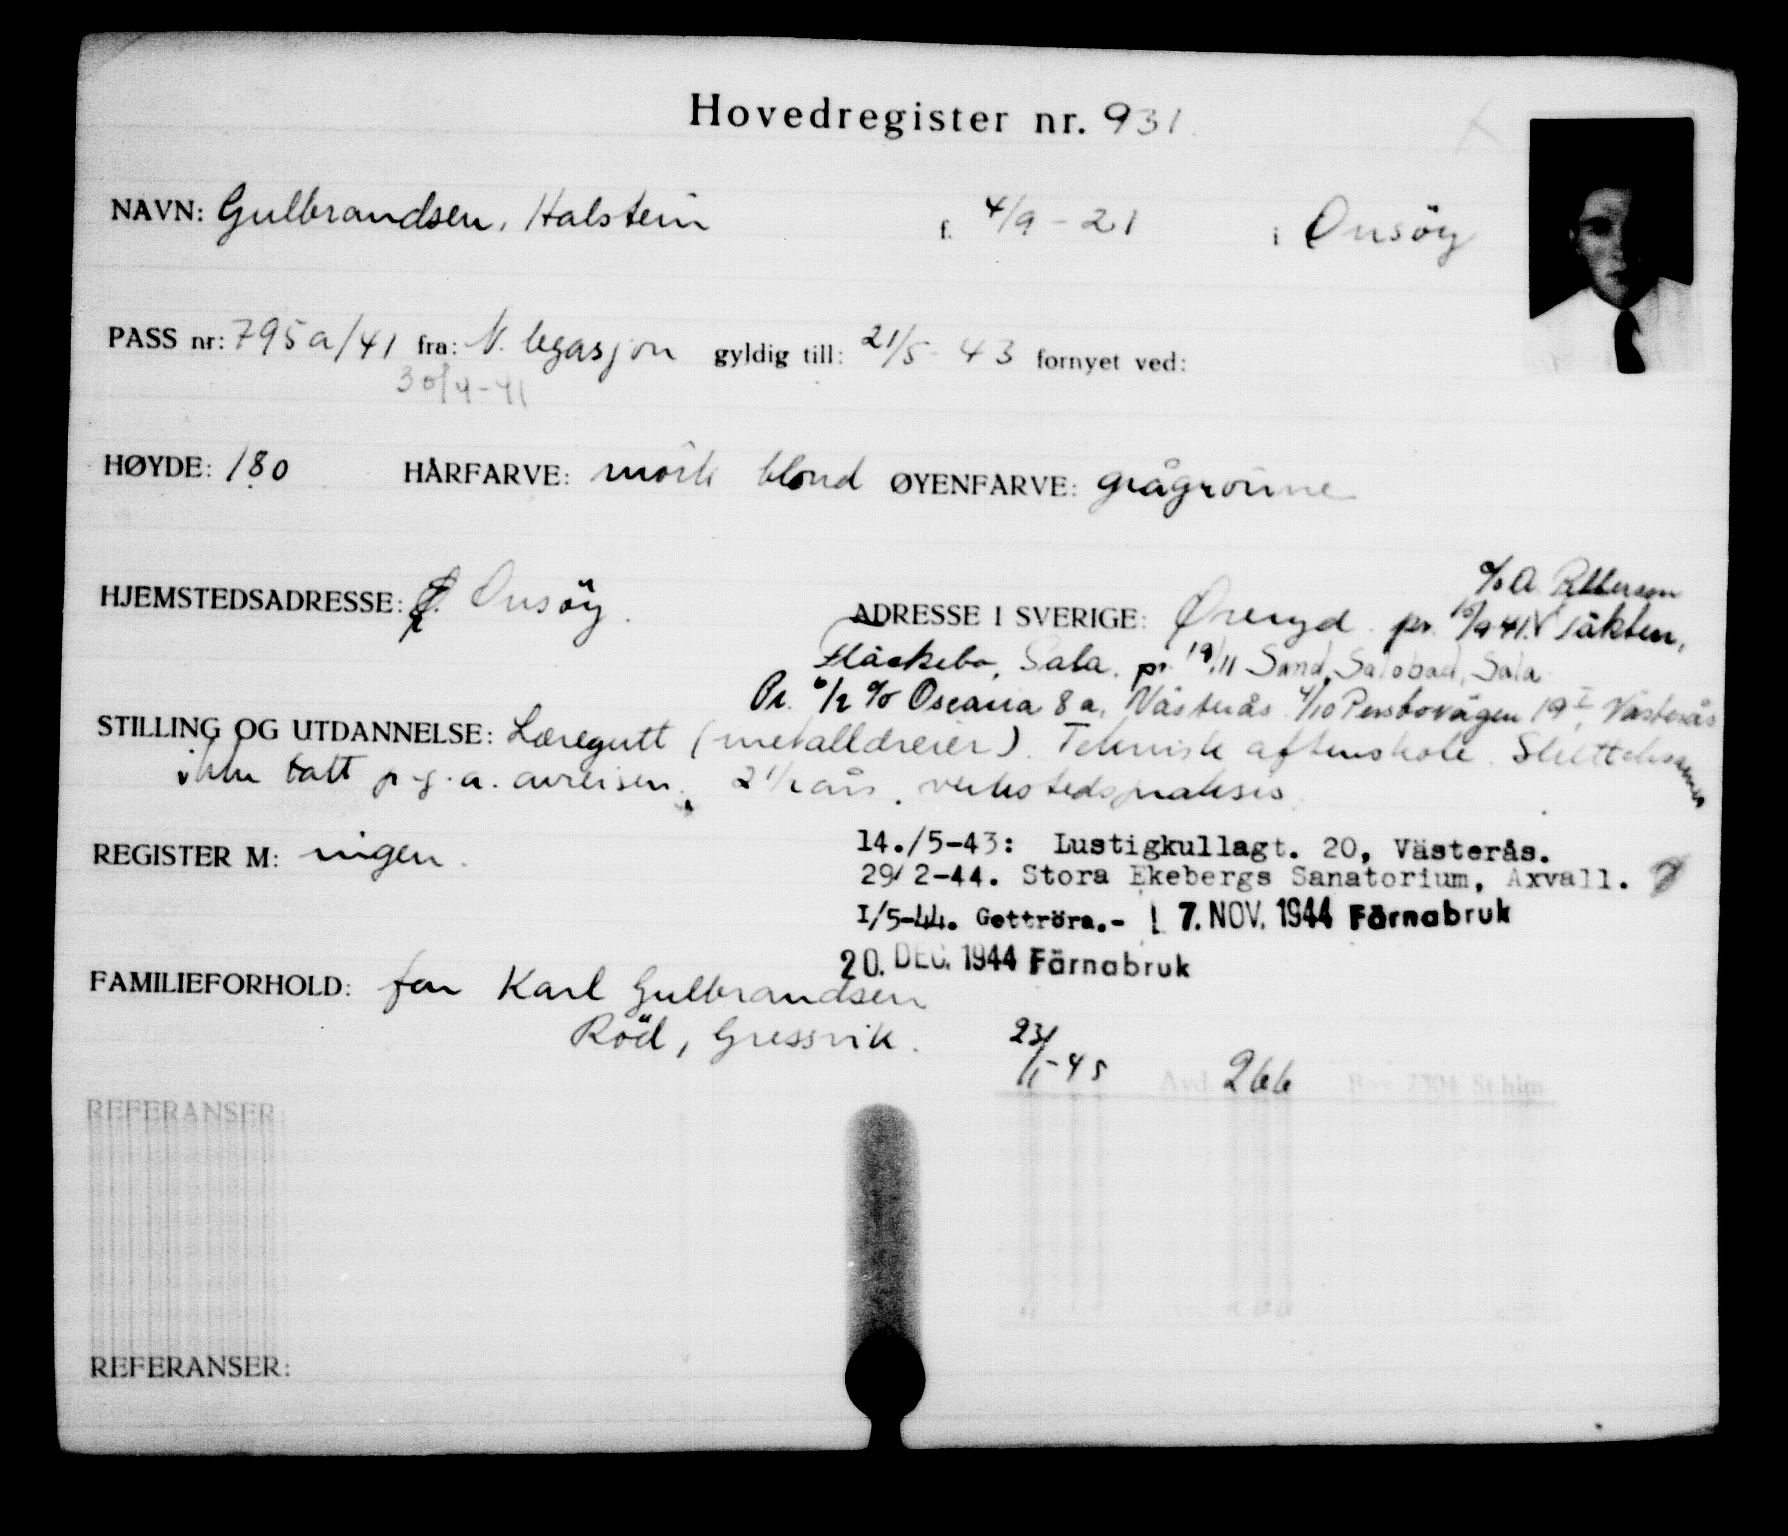 Hovedregister nr. 931
NAVN: Gulbrandsen, Halstein f. 4/9-21 i Onsöy
PASS nr: 795a/41 fra: N. legasjon gyldig till: 21/5-43 fornyet ved:
30/4-41
HØYDE: 180 HÅRFARVE: mörk blond ØYENFARVE: grågrönne
c/o A. Petterson
HJEMSTEDSADRESSE: Onsöy. ADRESSE I SVERIGE: Öreryd. pr. /9 41. V Täkten,
Fläckebo, Sala. pr. 19/11 Sand, Salobad, Sala
Pr. 6/2 c/o Oscaria 8a, Västerås 4/10 Persbovägen 19 I, Västerås
STILLING OG UTDANNELSE: Læregutt (metalldreier). Teknisk aftenskole. Sluttelseksamen
ikke tatt p.g.a. avreisen, 2 1/2 års verkstedspraksis.
REGISTER M: ingen.
14./5-43: Lustigkullagt. 20, Västerås.
29/ 2-44. Stora Ekebergs Sanatorium, Axvall.
1/5-44. Gettröra.- 17. NOV. 1944 Färnabruk
20. DEC. 1944 Färnabruk
FAMILIEFORHOLD: far Karl Gulbrandsen
Röd, Gressvik.
23/1-45 266
REFERANSER:
REFERANSER: